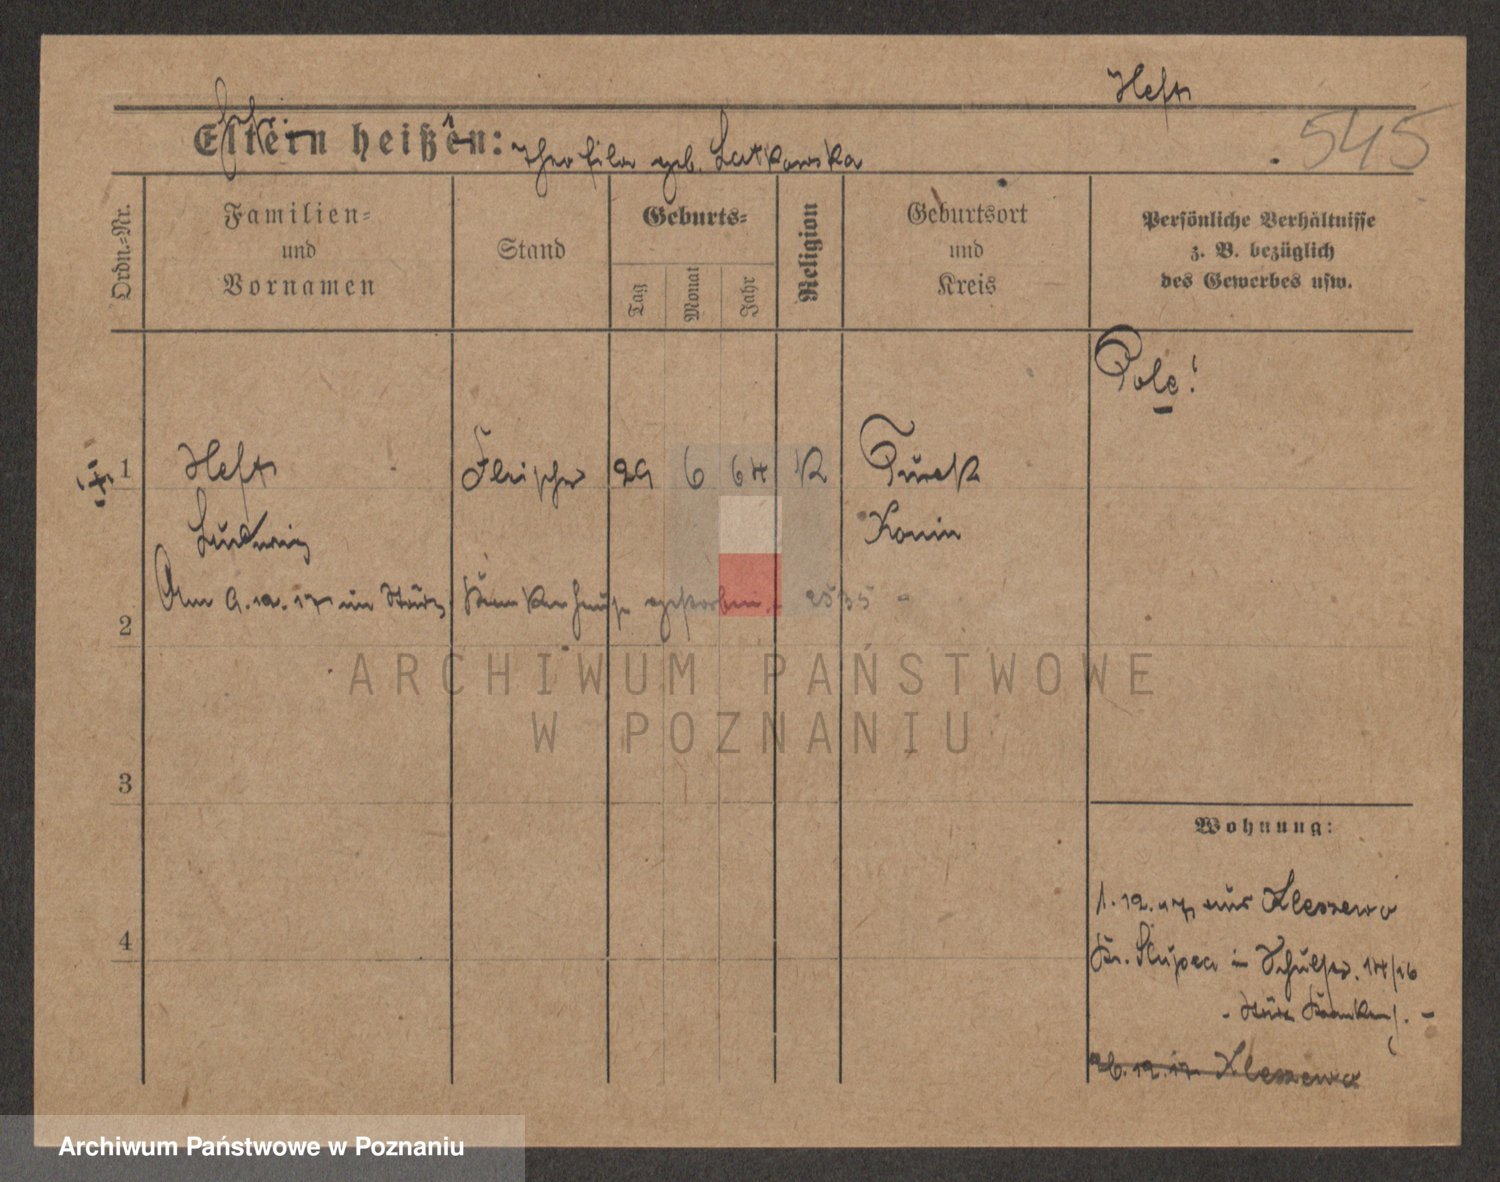 Heft
Eltern heißen: Theofila geb. Latkowska
545
Ordn.-Nr.
Familien-
und
Vornamen
Stand
Geburts-
Tag
Monat
Jahr
Religion
Geburtsort
und
Kreis
Persönliche Verhältnisse
z. B. bezüglich
des Gewerbes usw.
Pole!
1 Heft Fleischer 29 6 64 K Turek
Ludwig Konin
Am 9.12.17 im Städt. Krankenhause gestorben. 2535 -
2
ARCHIWUM PAŃSTWOWE
W POZNANIU
3
Wohnung:
1.12.17 aus Kleszewo
4
Kr. Slupca in Schulstr. 14/16
- Städt. Krankenh. -
26.12.17 Kleszewo
Archiwum Państwowe w Poznaniu